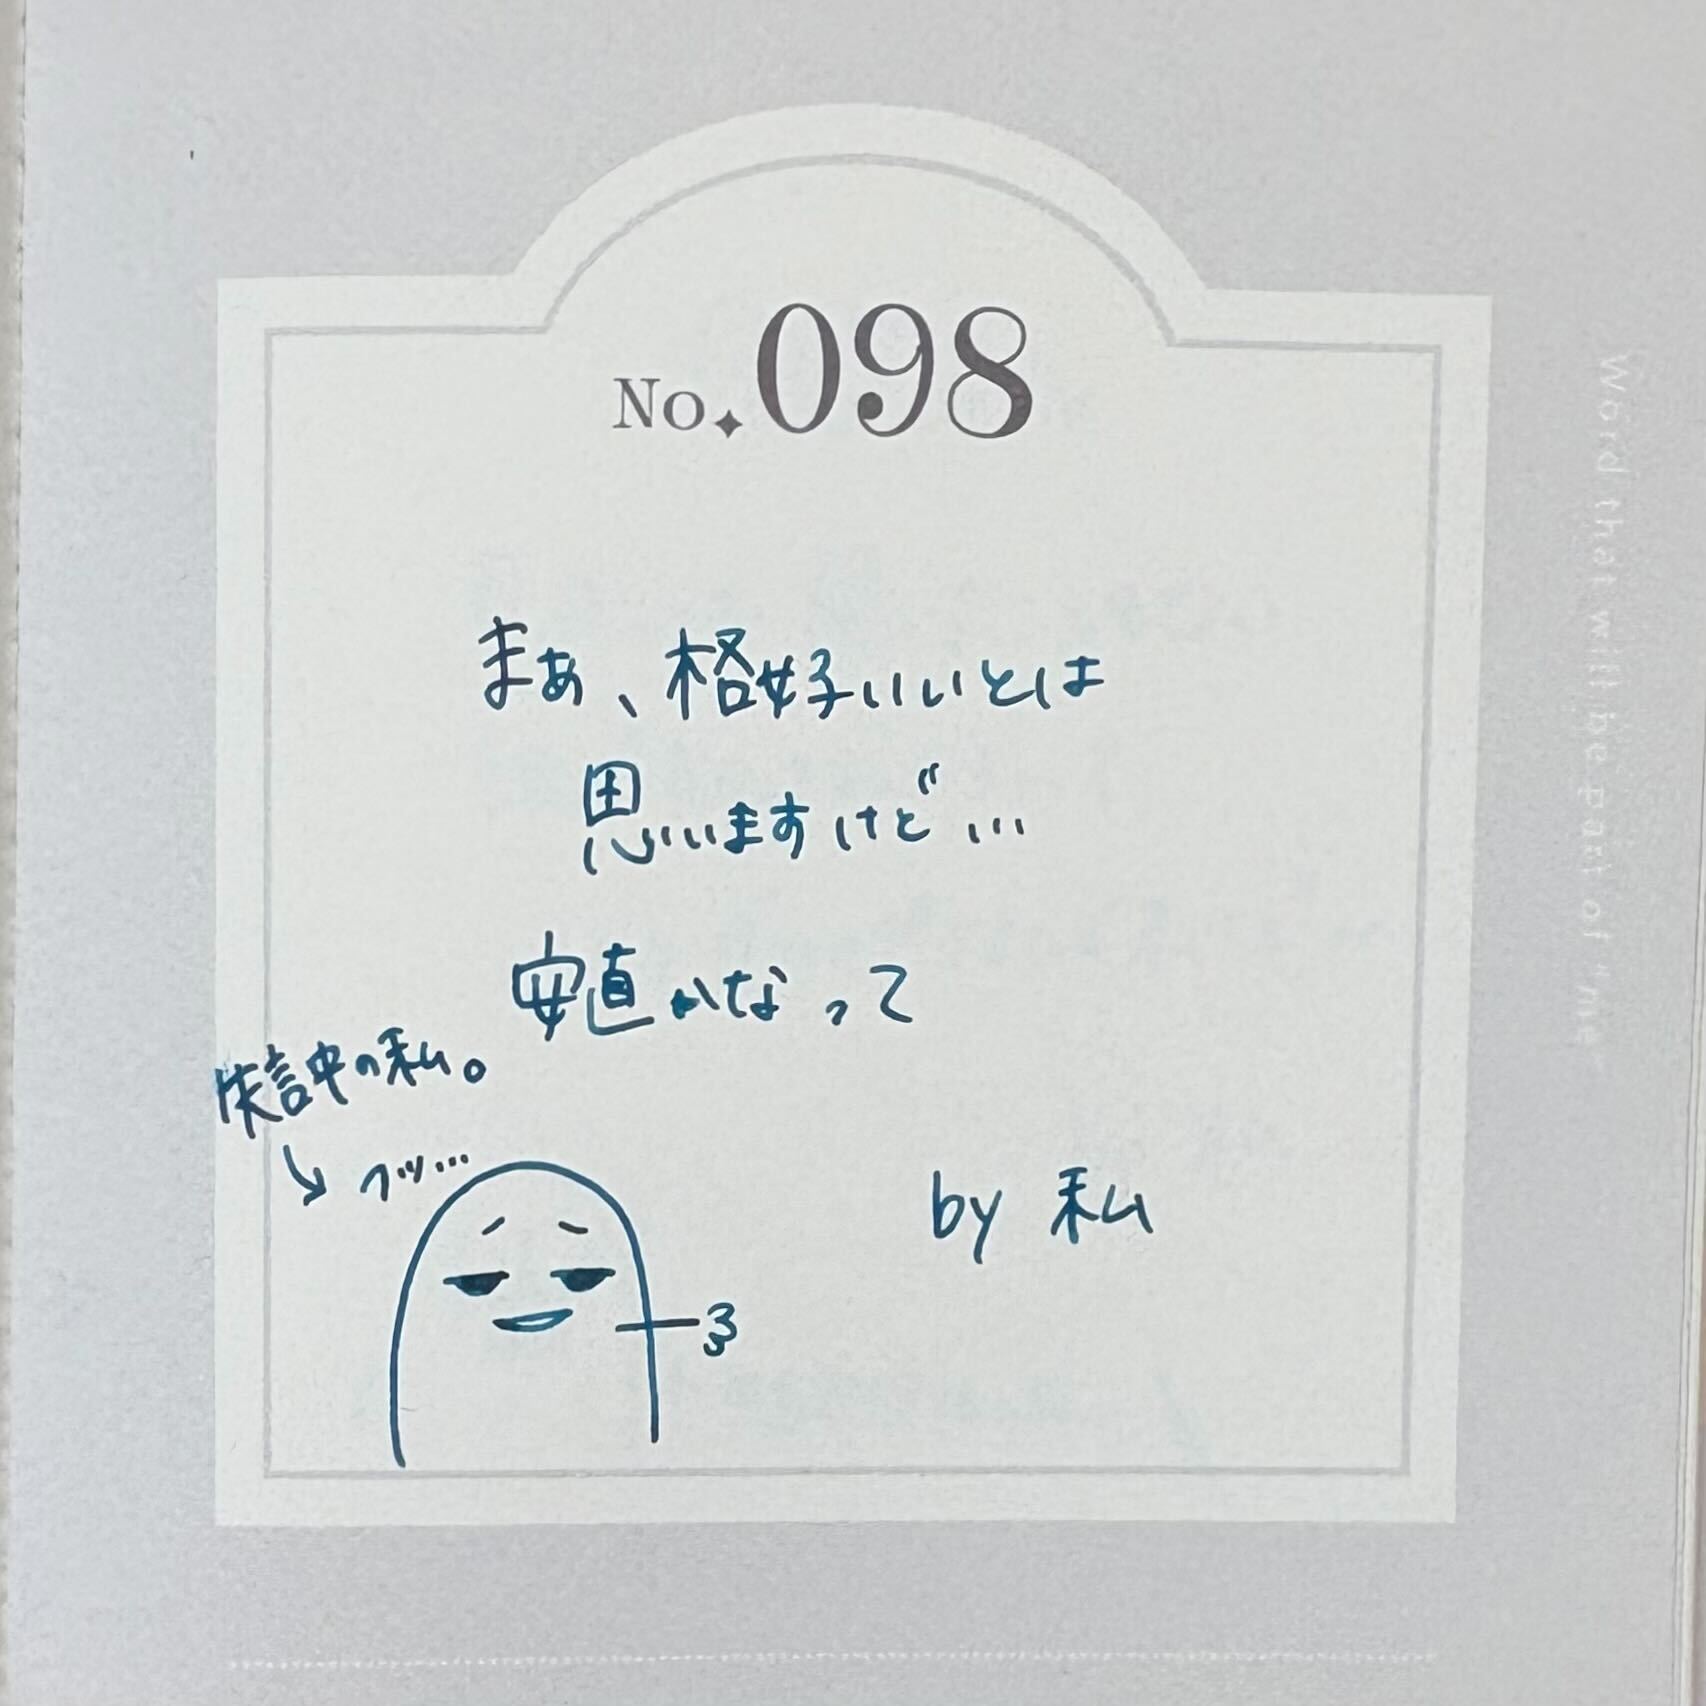 No.098
まあ、格好いいとは
思いますけど…
安直かなって
失言中の私。
フッ…
by 私
Word that will be part of me